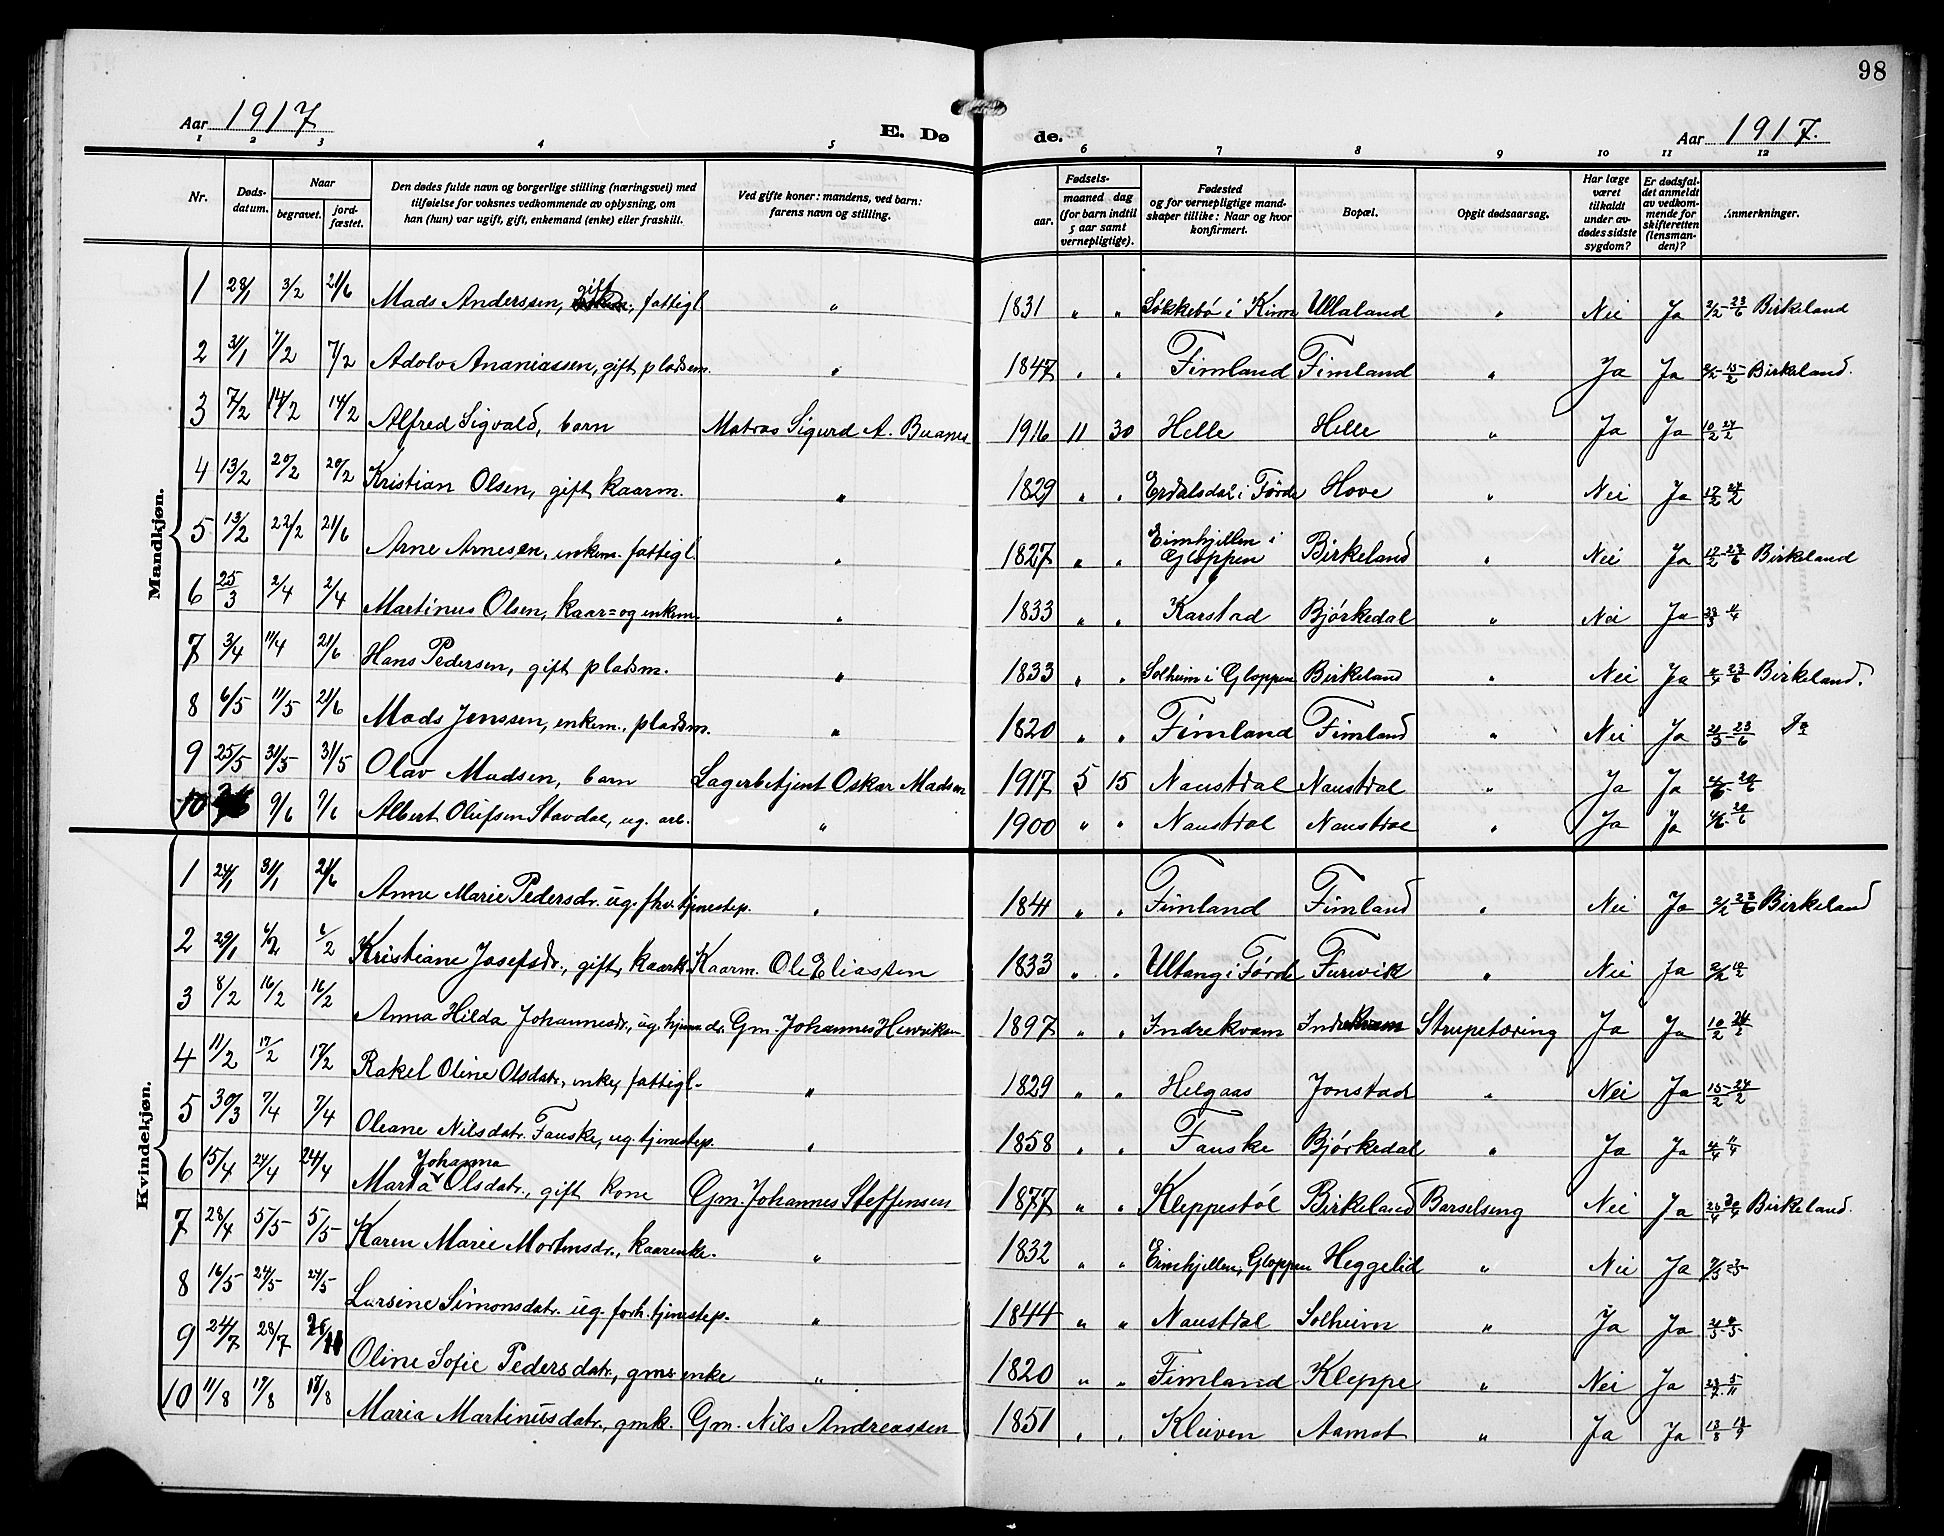 98
Aar 1917 E. Døde. Aar 1917.
1 2 3 4 5 6 7 8 9 10 11 12
Nr. Døds-datum. Naar begravet. jord-fæstet. Den dødes fulde navn og borgerlige stilling (næringsvei) med tilføielse for voksnes vedkommende av oplysning, om han (hun) var ugift, gift, enkemand (enke) eller fraskilt. Ved gifte koner: mandens, ved barn: farens navn og stilling. Fødsels- aar. maaned dag (for barn indtil 5 aar samt vernepligtige). Fødested og for vernepligtige mandskaper tillike: Naar og hvor konfirmert. Bopæl. Opgit dødsaarsag. Har læge været tilkaldt under avdødes sidste sygdom? Er dødsfaldet anmeldt av vedkommende for skifteretten (lensmanden)? Anmerkninger.
Mandkjøn.
1 28/1 3/2 21/6 Mads Anderssen, gift, fattigl. " 1831 " " Løkkebö i Kinn Ullaland " Nei Ja 2/2 - 23/6 Birkeland
2 31/1 7/2 7/2 Adolv Ananiassen, gift pladsm. " 1847 " " Fimland Fimland " Ja Ja 2/2 - 15/2 Birkeland.
3 7/2 14/2 14/2 Alfred Sigvald, barn Matros Sigurd A. Buanes 1916 11 30 Helle Helle " Ja Ja 10/2 24/2
4 13/2 20/2 20/2 Kristian Olsen, gift, kaarm. " 1829 " " Erdalsdal i Førde Hove " Nei Ja 17/2 24/2
5 13/2 22/2 21/6 Arne Arnesen, enkem. fattigl. " 1827 " " Eimhjellen i Gloppen Birkeland " Nei Ja 17/2 - 23/6 Birkeland
6 25/3 2/4 2/4 Martinus Olsen, kaar= og enkem. " 1833 " " Karstad Bjørkedal " Nei Ja 28/3 11/4
7 3/4 11/4 21/6 Hans Pedersen, gift pladsm. " 1833 " " Solheim i Gloppen Birkeland " Nei Ja 4/4 23/6 Birkeland.
8 6/5 11/5 21/6 Mads Jenssen, enkem., pladsm. " 1820 " " Fimland Fimland " Nei Ja 21/5 - 23/6 Do
9 25/5 31/5 31/5 Olav Madsen, barn Lagerbetjent Oskar Madsen 1917 5 15 Naustdal Naustdal " Ja Ja 20/6
10 9/6 9/6 Albert Olufsen Stavdal, ug. arb. " 1900 " " Naustdal Naustdal " Ja Ja 20/6
Kvindekjøn.
1 24/1 31/1 21/6 Anne Marie Pedersdr. ug. fhv. tjenestep. " 1841 " " Fimland Fimland " Nei Ja 2/2 23/6 Birkeland
2 29/1 6/2 6/2 Kristiane Josefsdr., gift, kaark. Kaarm. Ole Eliassen 1833 " " Ultang i Førde Furevik " Nei Ja 2/2 10/2
3 8/2 16/2 16/2 Anna Hilda Johannesdr., ug. hjemmedr. Gm. Johannes Henriksen 1897 " " Indrekvam Indrekvam Strupetæring Ja Ja 10/2 24/2
4 11/2 17/2 17/2 Rakel Oline Olsdatr., enke, fattigl. " 1829 " " Helgaas Jonstad " Nei Ja 15/2 - 24/2
5 30/3 7/4 7/4 Oleane Nilsdatr. Fauske, ug. tjenestep. " 1858 " " Fauske Bjørkedal " Ja Ja 4/4 11/4
6 15/4 24/4 24/4 Marta Johanna Olsdatr., gift kone Gm. Johannes Steffensen 1877 " " Kleppestøl Birkeland Barselseng Nei Ja Birkeland.
7 28/4 5/5 5/5 Karen Marie Mortensdr., kaarenke. " 1832 " " Eimhjellen, Gloppen Heggelid " Nei Ja
8 16/5 24/5 24/5 Larsine Simonsdatr. ug. forh. tjenestep. " 1844 " " Naustdal Solheim " Ja Ja
9 24/7 28/7 Oline Sofie Pedersdatr., gms enke " 1820 " " Fimland Kleppe " Nei Ja 5/11
10 11/8 19/8 18/8 Maria Martinusdatr., gmk. Gm. Nils Andreassen 1851 " " Kleiven Aamot " Ja Ja